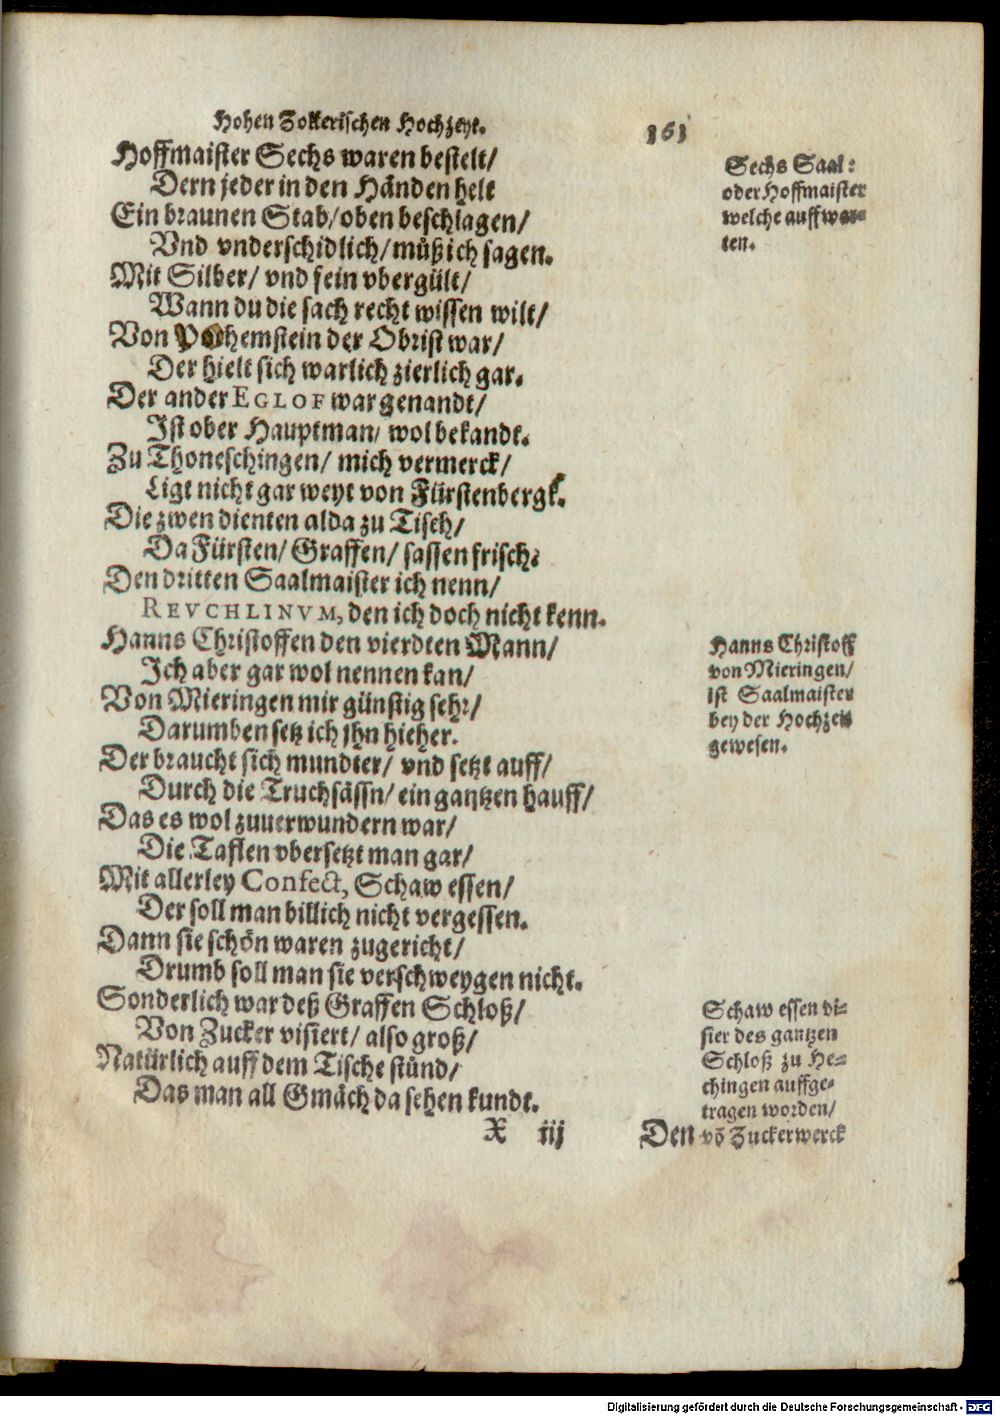 Hohen Zollerischen Hochzeyt.
161
Hoffmaister Sechs waren bestelt/
Dern jeder in den Händen helt
Ein braunen Stab/ oben beschlagen/
Vnd vnderschidlich/ müß ich sagen.
Mit Silber/ vnd fein vbergült/
Wann du die sach recht wissen wilt/
Von Pohemstein der Obrist war/
Der hielt sich warlich zierlich gar.
Der ander EGLOF war genandt/
Ist ober Hauptman/ wol bekandt.
Zu Thoneschingen/ mich vermerck/
Ligt nicht gar weyt von Fürstenbergk.
Die zwen dienten alda zu Tisch/
Da Fürsten/ Graffen/ sassen frisch:
Den dritten Saalmaister ich nenn/
REVCHLINVM, den ich doch nicht kenn.
Hanns Christoffen den vierdten Mann/
Ich aber gar wol nennen kan/
Von Mieringen mir günstig sehr/
Darumben setz ich jhn hieher.
Der braucht sich mundter/ vnd setzt auff/
Durch die Truchsässn/ ein gantzen hauff/
Das es wol zuuerwundern war/
Die Taflen vbersetzt man gar/
Mit allerley Confect, Schaw essen/
Der soll man billich nicht vergessen.
Dann sie schön waren zugericht/
Drumb soll man sie verschweygen nicht.
Sonderlich war deß Graffen Schloß/
Von Zucker visiert/ also groß/
Natürlich auff dem Tische stünd/
Das man all Gmäch da sehen kundt.
X iij
Den
Sechs Saal:
oder Hoffmaister
welche auffwar=
ten.
Hanns Christoff
von Mieringen/
ist Saalmaister
bey der Hochzeit
gewesen.
Schaw essen vi=
sier des gantzen
Schloß zu He=
chingen auffge=
tragen worden/
võ Zuckerwerck
Digitalisierung gefördert durch die Deutsche Forschungsgemeinschaft - DFG